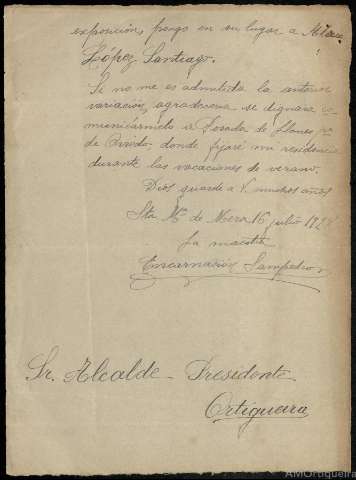 exposición, pongo en su lugar a
López Santiago.
Si no me es admitida la anterior
variación, agradecería se dignara co-
municármelo a Posada de Llanes,
de Oviedo, donde fijaré mi residencia
durante las vacaciones de verano.
Dios guarde a V. muchos años
Sta Mª de Mera 16 julio
La maestra
Encarnación Sampedro
Sr. Alcalde - Presidente
Ortigueira
AMOrtigueira